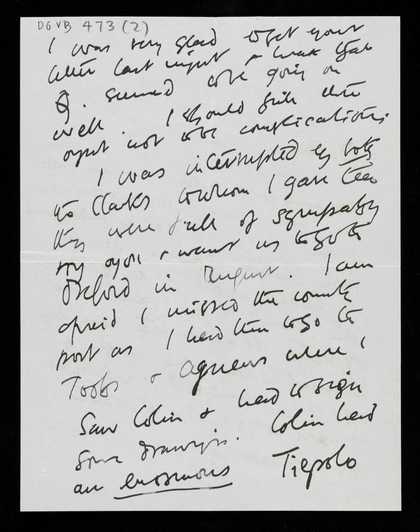 DGVB 473 (2)
I was very glad to get your
letter last night & hear that
Q. seemed to be going on
well. I should think there
ought not to be complications.
I was interrupted by both
to Clarks to whom I gave tea
they were full of sympathy
for you & want us to go to
Oxford in August. I am
afraid I missed the country
post as I had then to go to
Tooths & Agnews where I
Saw Colin & had to sign
Some drawings. Colin had
an enormous Tiepolo